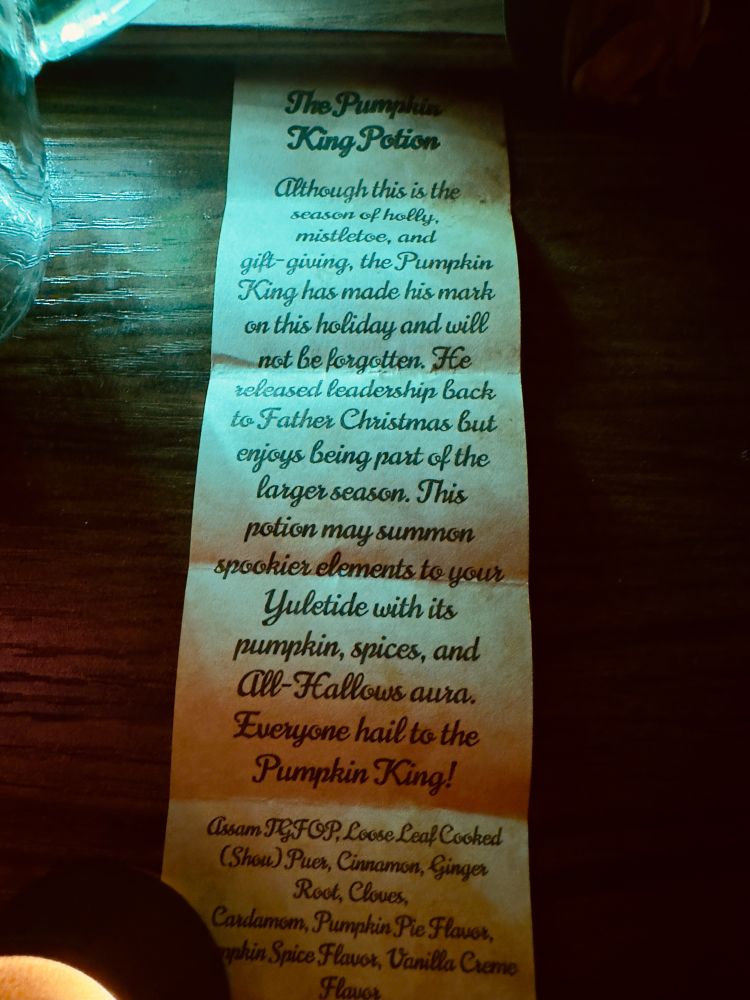 The Pumpkin
King Potion
Although this is the
season of holly,
mistletoe, and
gift-giving, the Pumpkin
King has made his mark
on this holiday and will
not be forgotten. He
released leadership back
to Father Christmas but
enjoys being part of the
larger season. This
potion may summon
spookier elements to your
Yuletide with its
pumpkin, spices, and
All-Hallows aura.
Everyone hail to the
Pumpkin King!
Assam TGFOP, Loose Leaf Cooked
(Shou) Puer, Cinnamon, Ginger
Root, Cloves,
Cardamom, Pumpkin Pie Flavor,
Spice Flavor, Vanilla Creme
Flavor